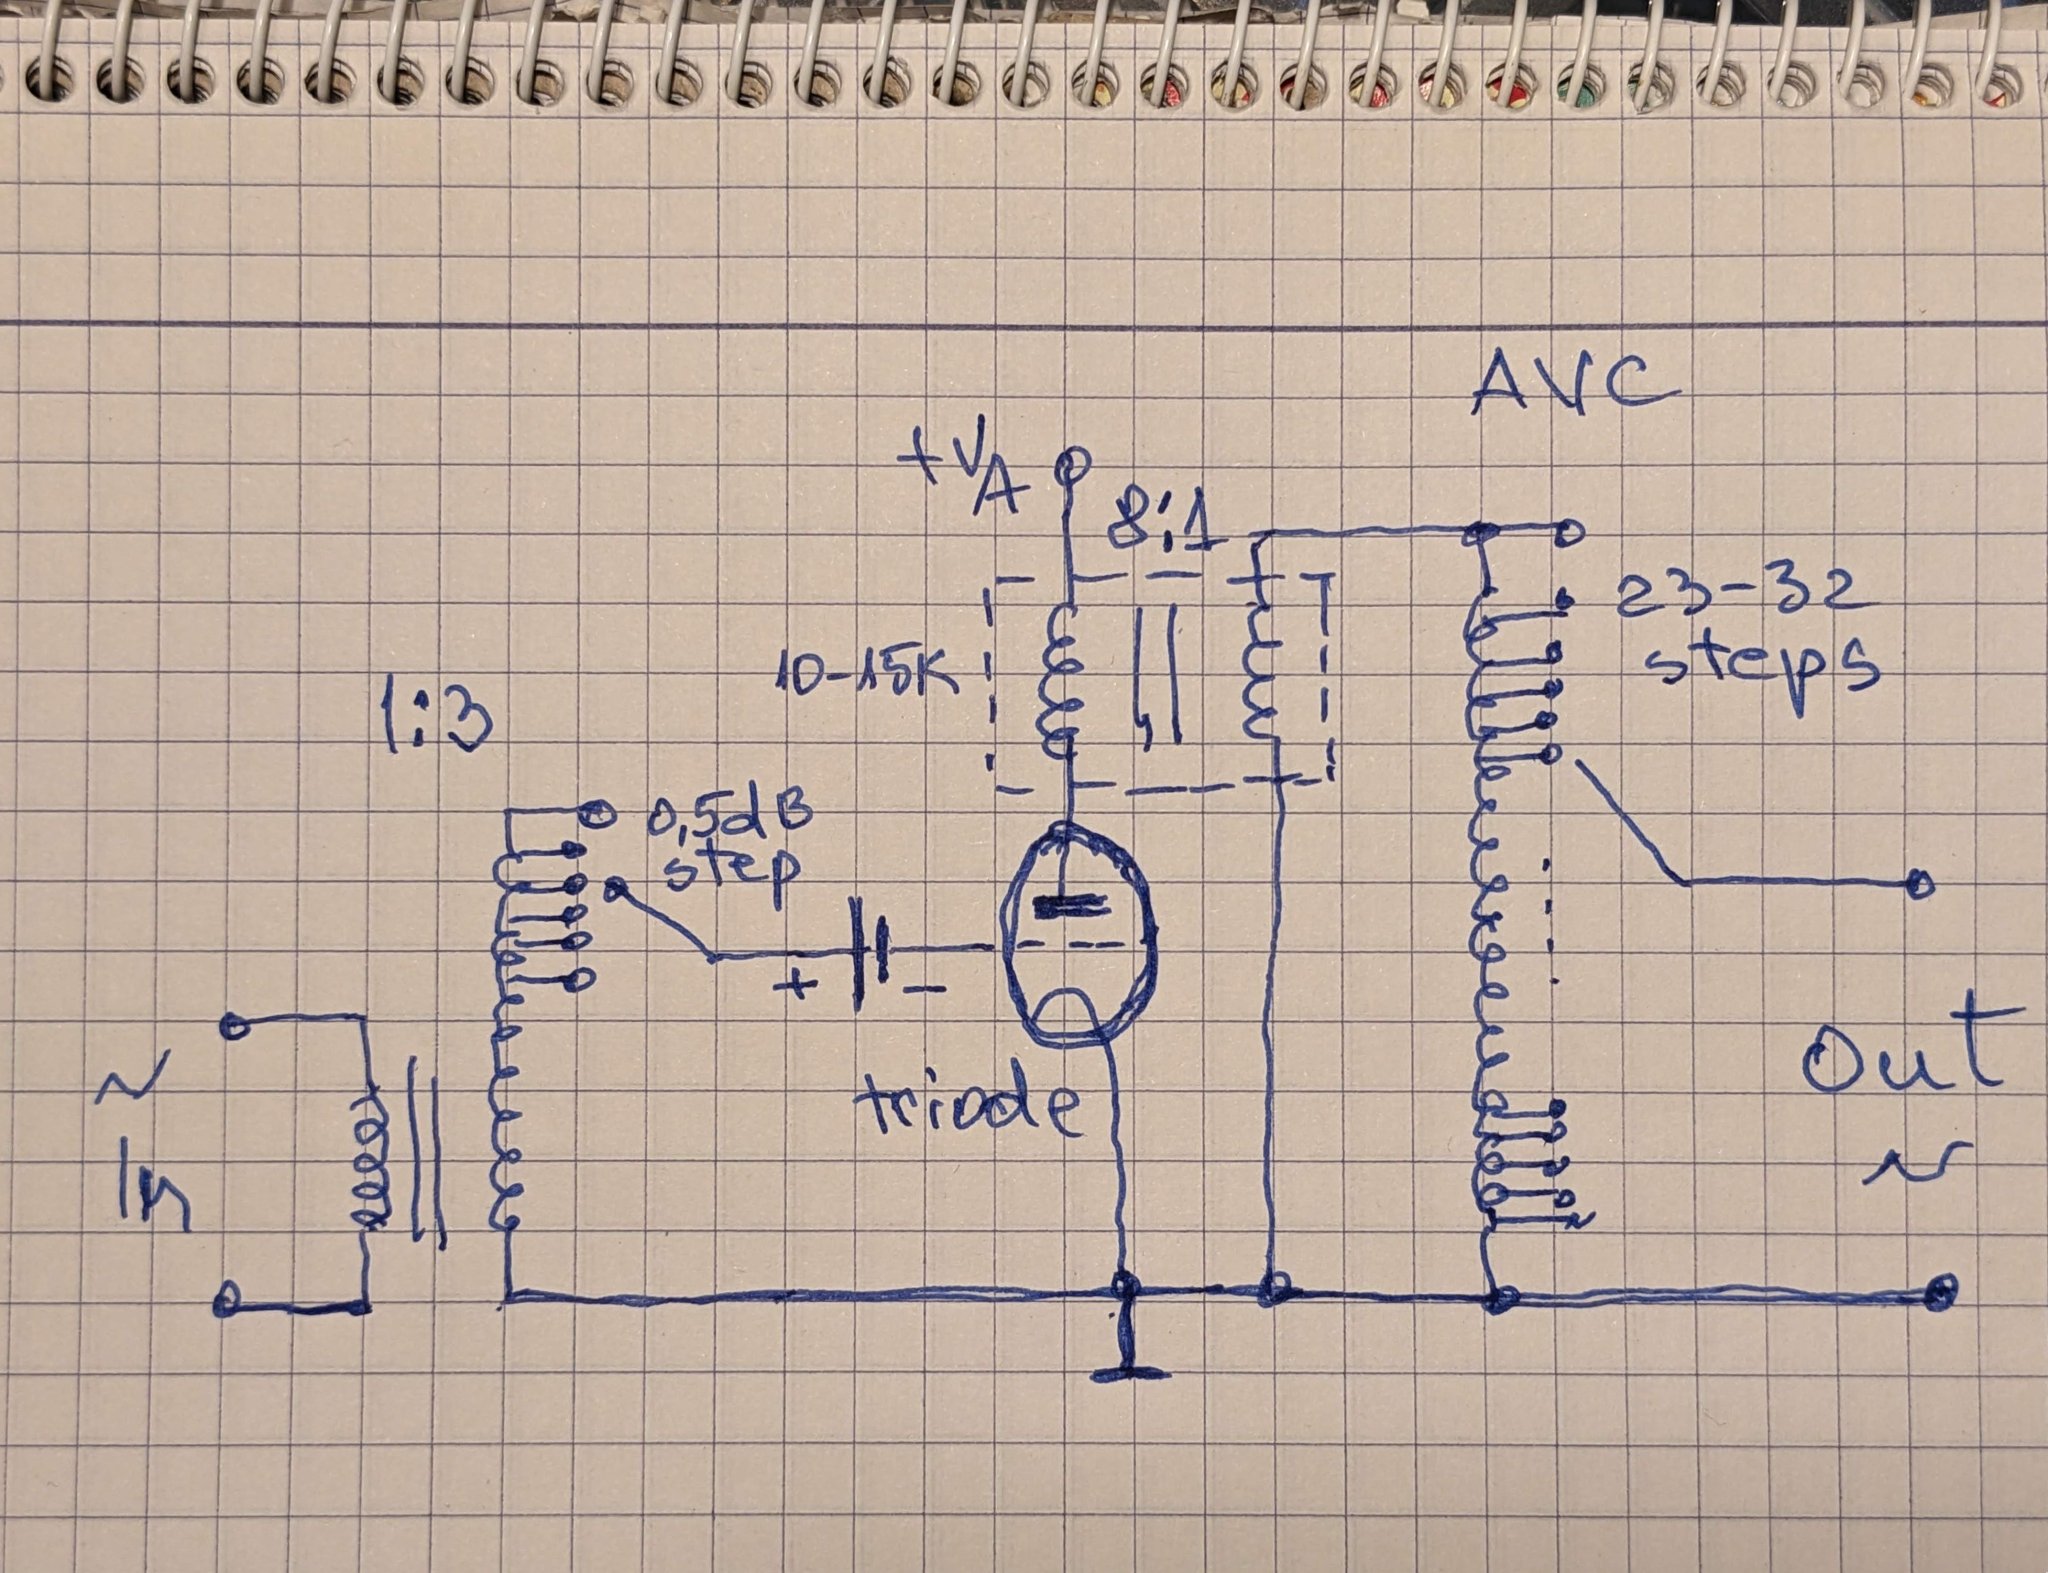 AVC
+VA
8:1
23-32
steps
10-15K
1:3
0,5dB
step
+ -
triode
~
In
Out
~